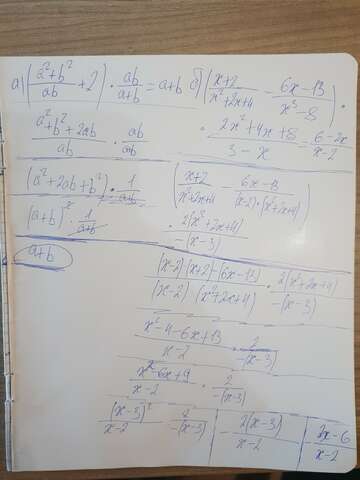 а) ((a²+b²)/(ab) + 2) · (ab)/(a+b) = a+b
(a²+b²+2ab)/(ab) · (ab)/(a+b)
(a²+2ab+b²) · 1/(a+b)
(a+b)² · 1/(a+b)
a+b
б) ((x+2)/(x²+2x+4) − (6x−13)/(x³−8)) ·
· (2x²+4x+8)/(3−x) = (6−2x)/(x−2)
((x+2)/(x²+2x+4) − (6x−13)/((x−2)·(x²+2x+4)))
· 2(x²+2x+4)/(−(x−3))
((x−2)(x+2)−(6x−13))/((x−2)(x²+2x+4)) · 2(x²+2x+4)/(−(x−3))
(x²−4−6x+13)/(x−2) · 2/(−(x−3))
(x²−6x+9)/(x−2) · 2/(−(x−3))
(x−3)²/(x−2) · 2/(−(x−3))
2(x−3)/(x−2)
(2x−6)/(x−2)